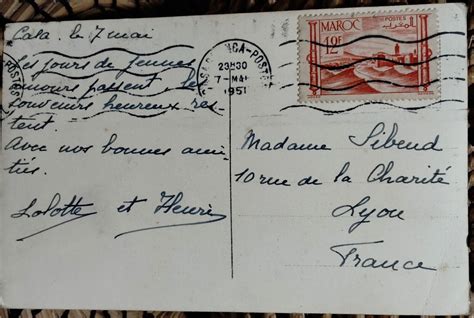 Casa. le 7 mai
Les jours de jeunes
amours passent, les
souvenirs heureux res-
tent.
Avec nos bonnes ami-
tiés.
Lolotte et Henri
CASABLANCA-POSTES
23H30
7-MAI
1951
POSTES
MAROC
12F
POSTES
Madame Sibend
10 rue de la Charité
Lyon
France